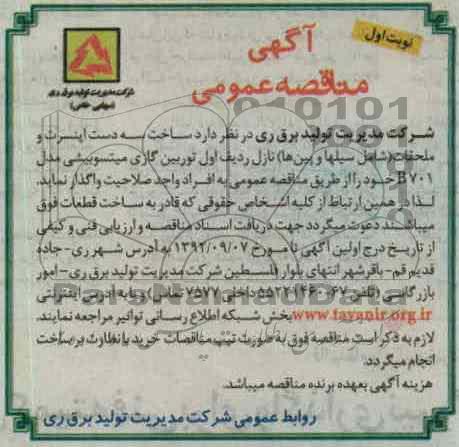 نوبت اول
آگهی
مناقصه عمومی
شرکت مدیریت تولید برق ری
(سهامی خاص)
شرکت مدیریت تولید برق ری در نظر دارد ساخت سه دست اینسرت و
ملحقات(شامل سیلها و پین‌ها) نازل ردیف اول توربین گازی میتسوبیشی مدل
B۷۰۱ خود را از طریق مناقصه عمومی به افراد واجد صلاحیت واگذار نماید.
لذا در همین ارتباط از کلیه اشخاص حقوقی که قادر به ساخت قطعات فوق
میباشند دعوت میگردد جهت دریافت اسناد مناقصه و ارزیابی فنی و کیفی
از تاریخ درج اولین آگهی تا مورخ ۱۳۹۲/۰۹/۰۷ به آدرس شهر ری- جاده
قدیم قم- باقرشهر انتهای بلوار فلسطین شرکت مدیریت تولید برق ری- امور
بازرگانی (تلفن ۶۷-۵۵۲۲۱۴۶۰ داخلی ۷۵۷۷ تماس) و یا به آدرس اینترنتی
www.tavanir.org.ir بخش شبکه اطلاع رسانی توانیر مراجعه نمایند.
لازم به ذکر است مناقصه فوق به صورت تیپ مناقصات خرید با نظارت بر ساخت
انجام میگردد.
هزینه آگهی بعهده برنده مناقصه میباشد.
روابط عمومی شرکت مدیریت تولید برق ری